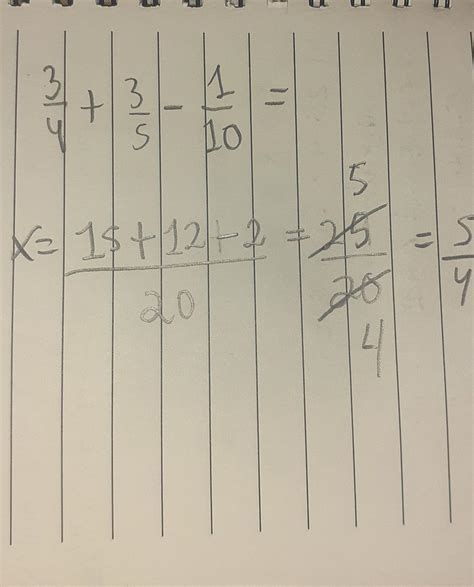 3/4 + 3/5 - 1/10 =
x = 15+12-2/20 = 25/20 = 5/4
5
4